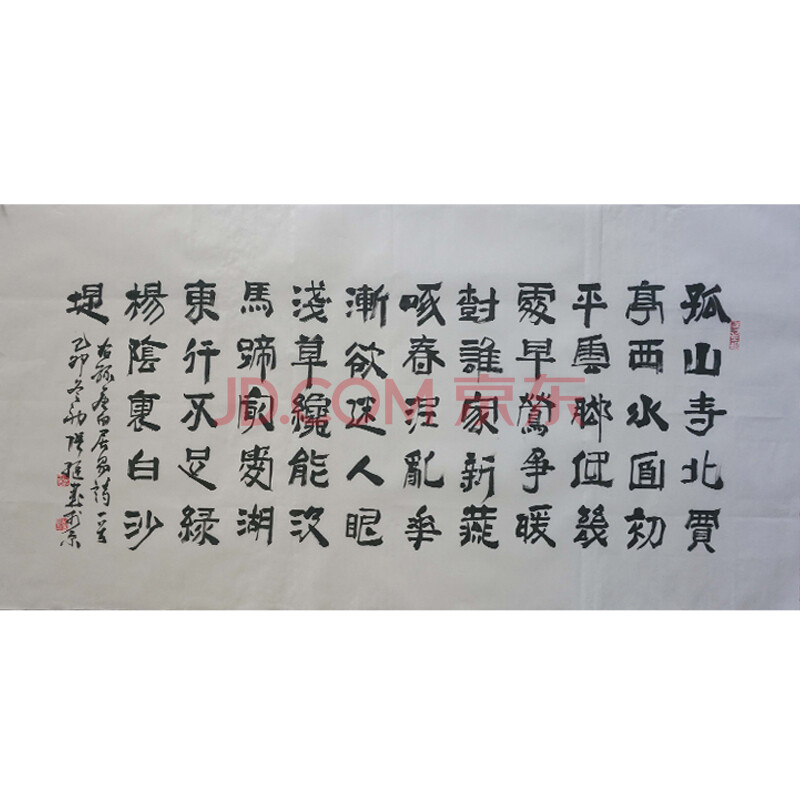 孤山寺北賈
亭西水面初
平雲腳低幾
處早鶯爭暖
對誰家新燕
啄春泥亂華
漸欲迷人眼
淺草纔能沒
馬蹄最愛湖
東行不足綠
楊陰裏白沙
堤
右錄唐白居易詩一首
卯冬初書於京
JD.COM 京东